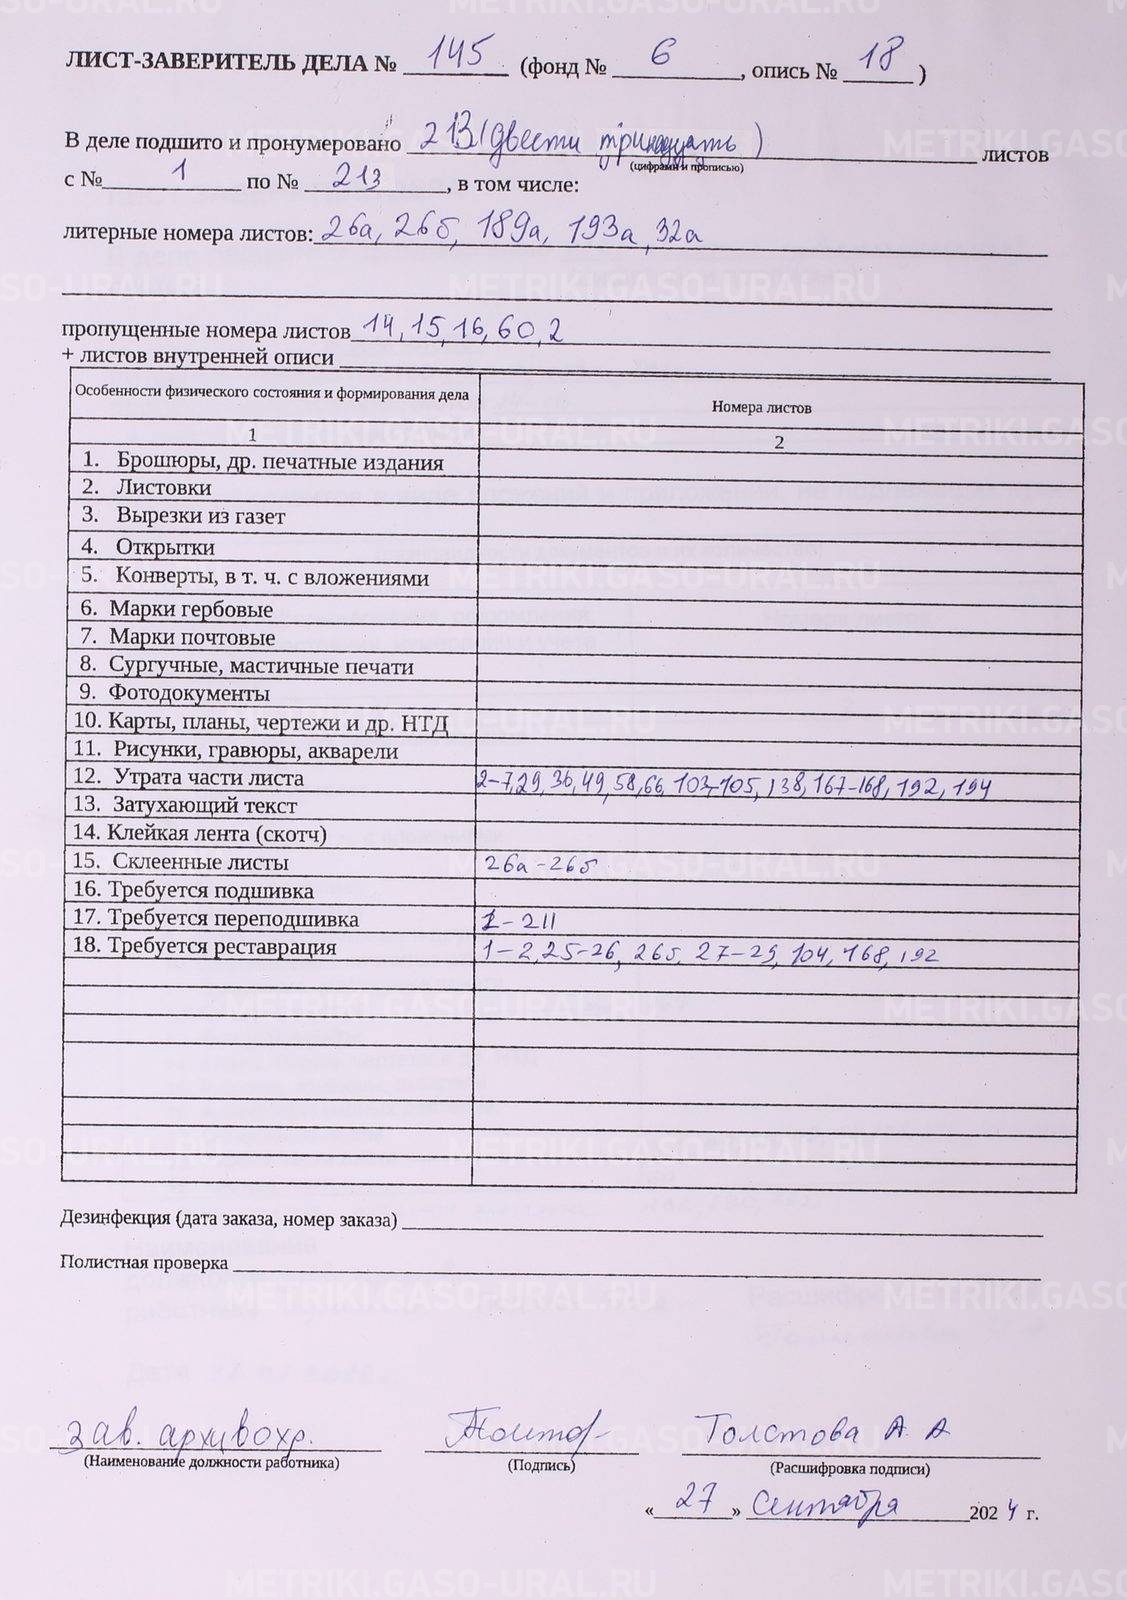 ЛИСТ-ЗАВЕРИТЕЛЬ ДЕЛА № 145 (фонд № 6, опись № 18)
В деле подшито и пронумеровано 213 (двести тринадцать) листов
(цифрами и прописью)
с № 1 по № 213, в том числе:
литерные номера листов: 26а, 26б, 189а, 193а, 32а
пропущенные номера листов 14, 15, 16, 60, 2
+ листов внутренней описи
Особенности физического состояния и формирования дела Номера листов
1 2
1. Брошюры, др. печатные издания
2. Листовки
3. Вырезки из газет
4. Открытки
5. Конверты, в т. ч. с вложениями
6. Марки гербовые
7. Марки почтовые
8. Сургучные, мастичные печати
9. Фотодокументы
10. Карты, планы, чертежи и др. НТД
11. Рисунки, гравюры, акварели
12. Утрата части листа 2-7, 29, 36, 49, 58, 66, 103-105, 138, 167-168, 192, 194
13. Затухающий текст
14. Клейкая лента (скотч)
15. Склеенные листы 26а-26б
16. Требуется подшивка
17. Требуется переподшивка 1-211
18. Требуется реставрация 1-2, 25-26, 26б, 27-29, 104, 168, 192
Дезинфекция (дата заказа, номер заказа)
Полистная проверка
зав. архивохр. Толстова А А
(Наименование должности работника) (Подпись) (Расшифровка подписи)
«27» Сентября 2024 г.
METRIKI.GASO-URAL.RU